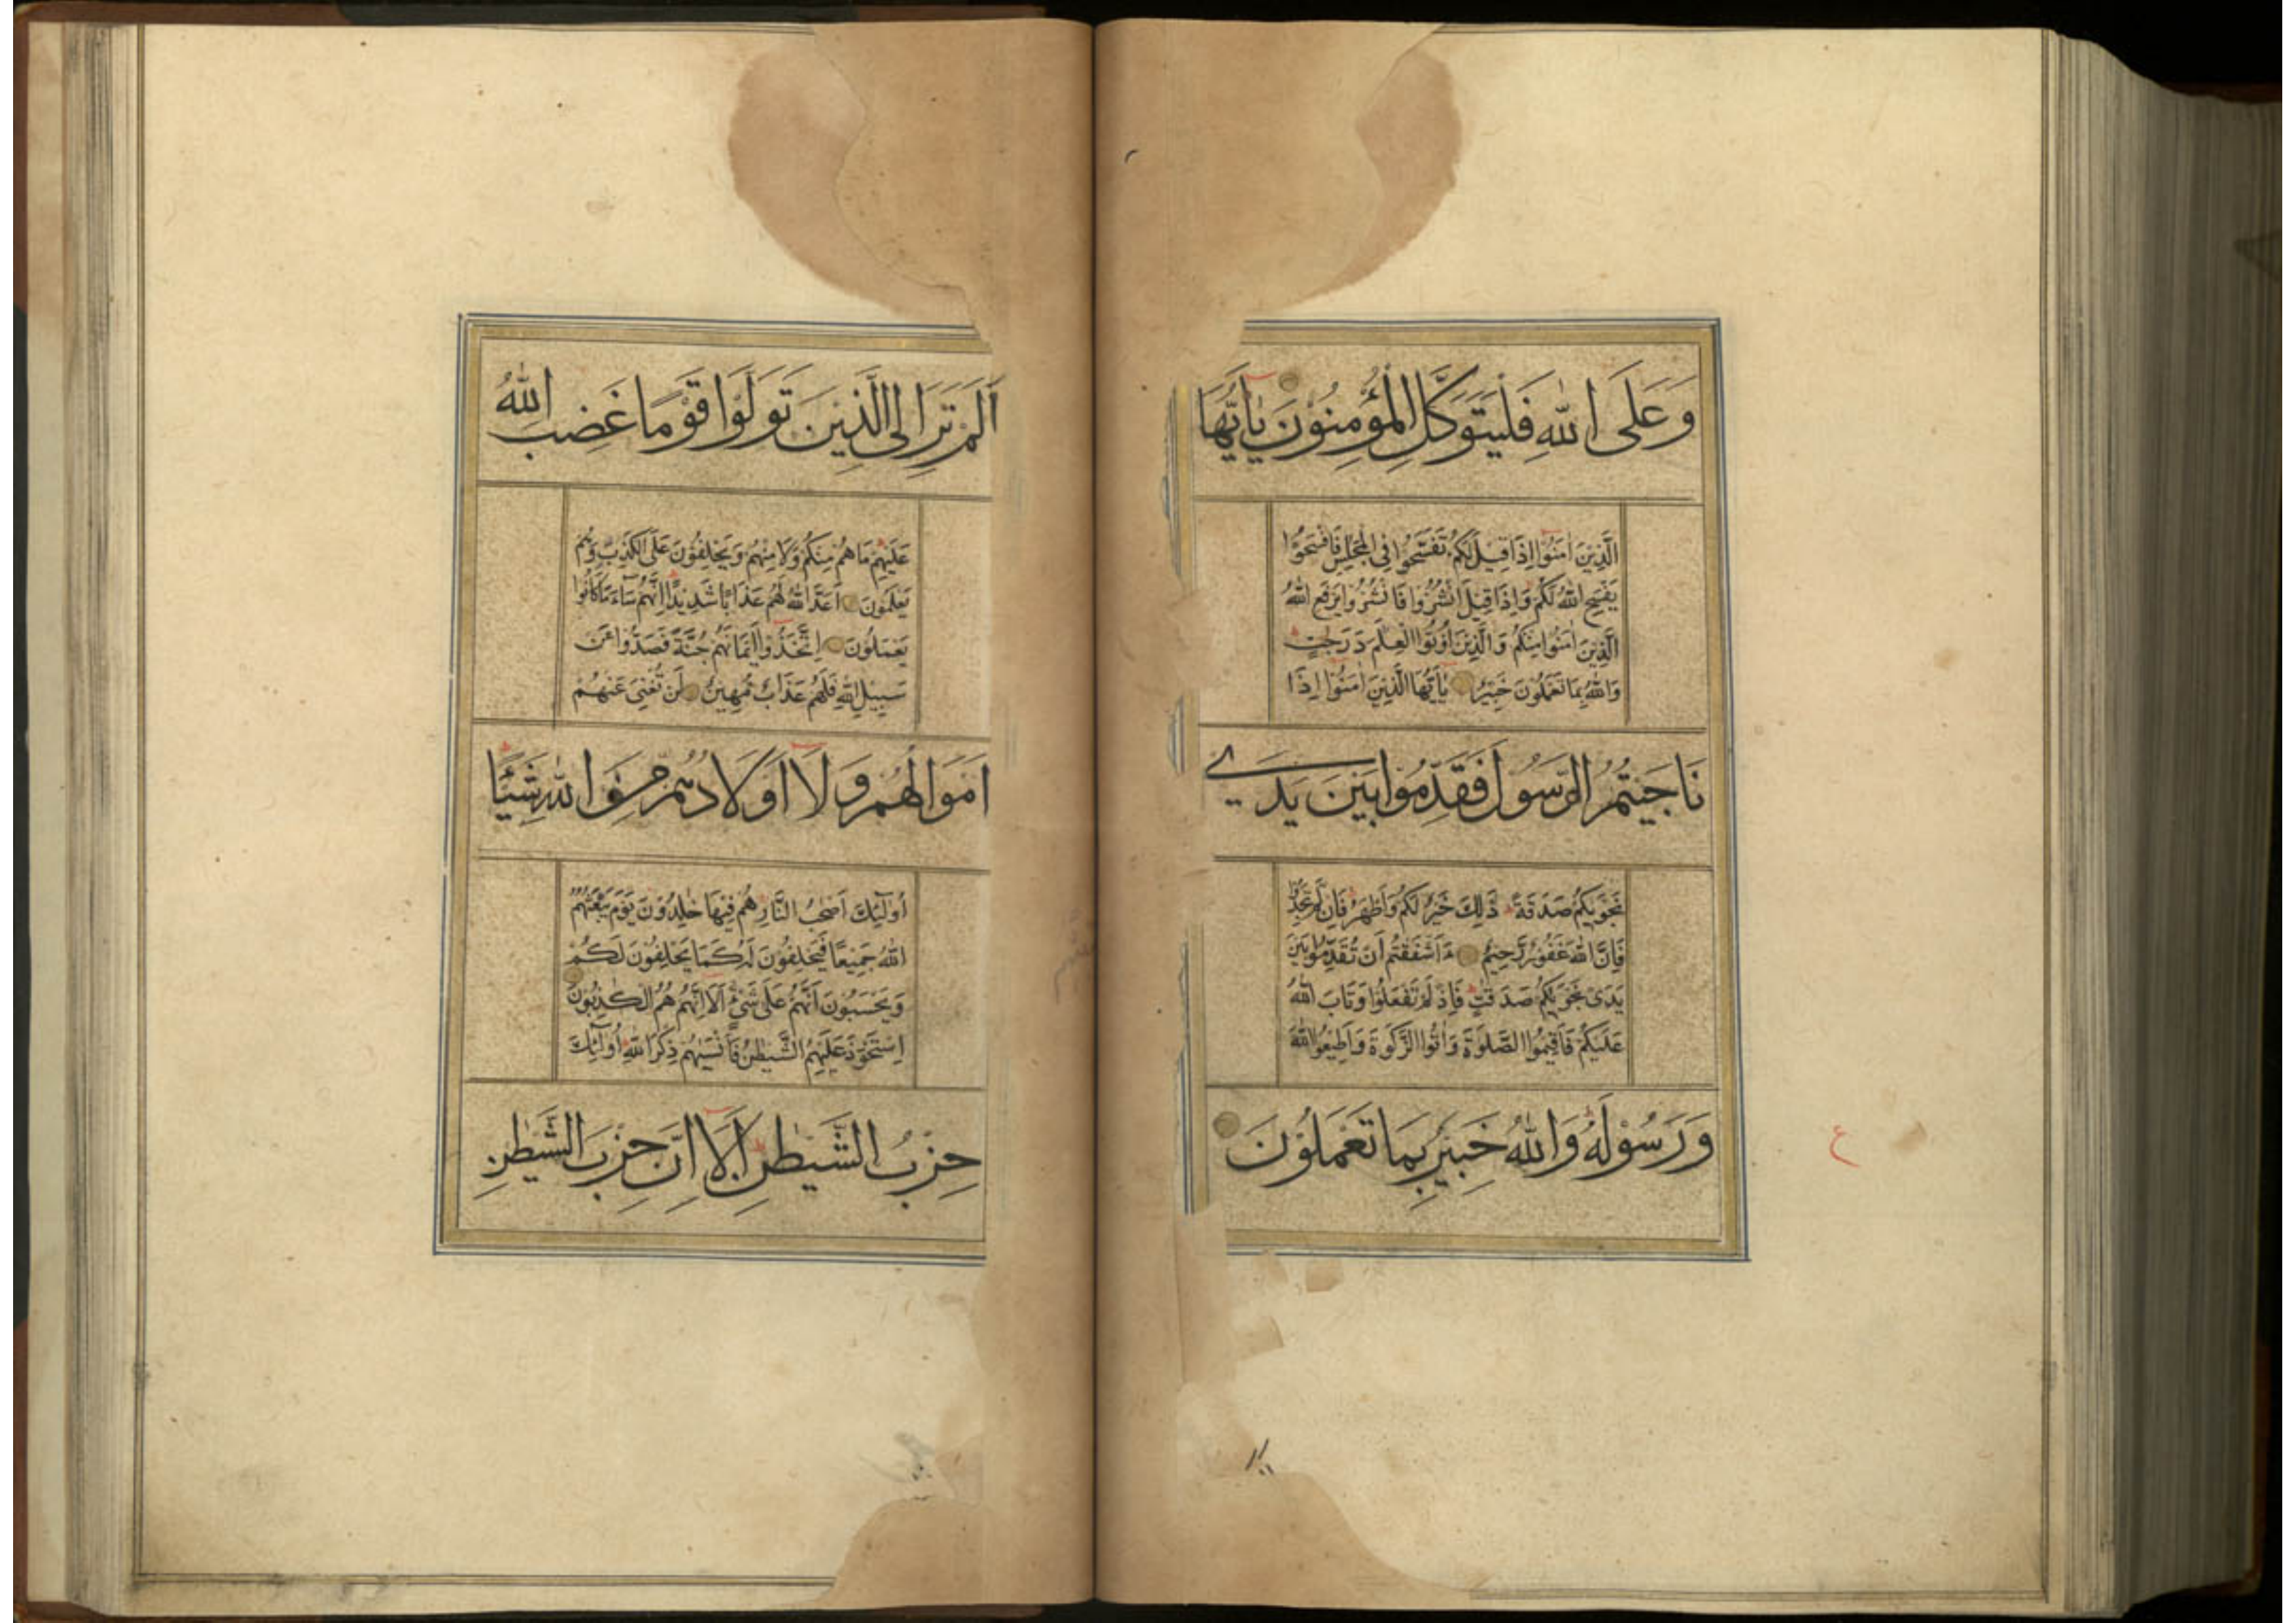 وَعَلَى اللّٰهِ فَلْيَتَوَكَّلِ الْمُؤْمِنُوْنَ يٰٓاَيُّهَا
الَّذِيْنَ اٰمَنُوْٓا اِذَا قِيْلَ لَكُمْ تَفَسَّحُوْا فِي الْمَجٰلِسِ فَافْسَحُوْا
يَفْسَحِ اللّٰهُ لَكُمْ وَاِذَا قِيْلَ انْشُزُوْا فَانْشُزُوْا يَرْفَعِ اللّٰهُ
الَّذِيْنَ اٰمَنُوْا مِنْكُمْ وَالَّذِيْنَ اُوْتُوا الْعِلْمَ دَرَجٰتٍ
وَاللّٰهُ بِمَا تَعْمَلُوْنَ خَبِيْرٌ يٰٓاَيُّهَا الَّذِيْنَ اٰمَنُوْٓا اِذَا
نَاجَيْتُمُ الرَّسُوْلَ فَقَدِّمُوْا بَيْنَ يَدَيْ
نَجْوٰىكُمْ صَدَقَةً ذٰلِكَ خَيْرٌ لَّكُمْ وَاَطْهَرُ فَاِنْ لَّمْ تَجِدُوْا
فَاِنَّ اللّٰهَ غَفُوْرٌ رَّحِيْمٌ ءَاَشْفَقْتُمْ اَنْ تُقَدِّمُوْا بَيْنَ
يَدَيْ نَجْوٰىكُمْ صَدَقٰتٍ فَاِذْ لَمْ تَفْعَلُوْا وَتَابَ اللّٰهُ
عَلَيْكُمْ فَاَقِيْمُوا الصَّلٰوةَ وَاٰتُوا الزَّكٰوةَ وَاَطِيْعُوا اللّٰهَ
وَرَسُوْلَهٗ وَاللّٰهُ خَبِيْرٌ بِمَا تَعْمَلُوْنَ
ع
اَلَمْ تَرَ اِلَى الَّذِيْنَ تَوَلَّوْا قَوْمًا غَضِبَ اللّٰهُ
عَلَيْهِمْ مَا هُمْ مِنْكُمْ وَلَا مِنْهُمْ وَيَحْلِفُوْنَ عَلَى الْكَذِبِ وَهُمْ
يَعْلَمُوْنَ اَعَدَّ اللّٰهُ لَهُمْ عَذَابًا شَدِيْدًا اِنَّهُمْ سَآءَ مَا كَانُوْا
يَعْمَلُوْنَ اِتَّخَذُوْٓا اَيْمَانَهُمْ جُنَّةً فَصَدُّوْا عَنْ
سَبِيْلِ اللّٰهِ فَلَهُمْ عَذَابٌ مُّهِيْنٌ لَنْ تُغْنِيَ عَنْهُمْ
اَمْوَالُهُمْ وَلَآ اَوْلَادُهُمْ مِنَ اللّٰهِ شَيْئًا
اُولٰٓئِكَ اَصْحٰبُ النَّارِ هُمْ فِيْهَا خٰلِدُوْنَ يَوْمَ يَبْعَثُهُمُ
اللّٰهُ جَمِيْعًا فَيَحْلِفُوْنَ لَهٗ كَمَا يَحْلِفُوْنَ لَكُمْ
وَيَحْسَبُوْنَ اَنَّهُمْ عَلٰى شَيْءٍ اَلَآ اِنَّهُمْ هُمُ الْكٰذِبُوْنَ
اِسْتَحْوَذَ عَلَيْهِمُ الشَّيْطٰنُ فَاَنْسٰىهُمْ ذِكْرَ اللّٰهِ اُولٰٓئِكَ
حِزْبُ الشَّيْطٰنِ اَلَآ اِنَّ حِزْبَ الشَّيْطٰنِ